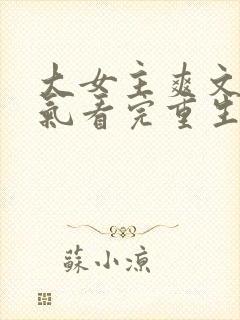 大女主爽文
氣看完重生
蘇小凉